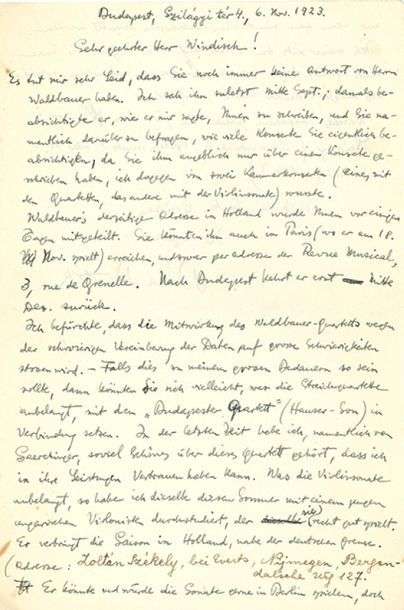 Budapest, Szilágyi tér 4., 6. Nov. 1923.
Sehr geehrter Herr Windisch!
Es tut mir sehr Leid, dass Sie noch immer keine Antwort von Herrn
Waldbauer haben. Ich sah ihn zuletzt Mitte Sept.; damals be-
absichtigte er, wie er mir sagte, Ihnen zu schreiben, und Sie na-
mentlich darüber zu befragen, wie viele Konzerte Sie eigentlich be-
absichtigten, da Sie ihm angeblich nur über einen Konzerte ge-
schrieben haben, ich dagegen von zwei Kammerkonzerten (eines mit
den Quartetten, das andere mit der Violinsonate) wusste.
Waldbauer's derzeitige Adresse in Holland wurde Ihnen vor einigen
Tagen mitgeteilt. Sie könnten ihn auch in Paris (wo er am 18.
Nov. spielt) erreichen, und zwar per adresse der Revue Musical,
3, rue de Grenelle. Nach Budapest kehrt er erst Mitte
Dez. zurück.
Ich befürchte, dass die Mitwirkung des Waldbauer-Quartetts wegen
der schwierigen Vereinbarung der Daten auf grosse Schwierigkeiten
stossen wird. – Falls dies zu meinem grossen Bedauern so sein
sollte, dann könnten Sie sich vielleicht, was die Streichquartette
anbelangt, mit dem „Budapester Quartett" (Hauser-Son) in
Verbindung setzen. In der letzten Zeit habe ich, namentlich von
soviel Schönes über dieses Quartett gehört, dass ich
in ihre Leistungen Vertrauen haben kann. Was die Violinsonate
anbelangt, so habe ich dieselbe diesen Sommer mit einem jungen
ungarischen Violinisten durchstudiert, der sie recht gut spielt.
Er verbringt die Saison in Holland, nahe der deutschen Grenze.
(Adresse: Zoltán Székely, bei Everts, Nijmegen, Bergen-
dalsche weg 127.
Er könnte und würde die Sonate gerne in Berlin spielen, doch